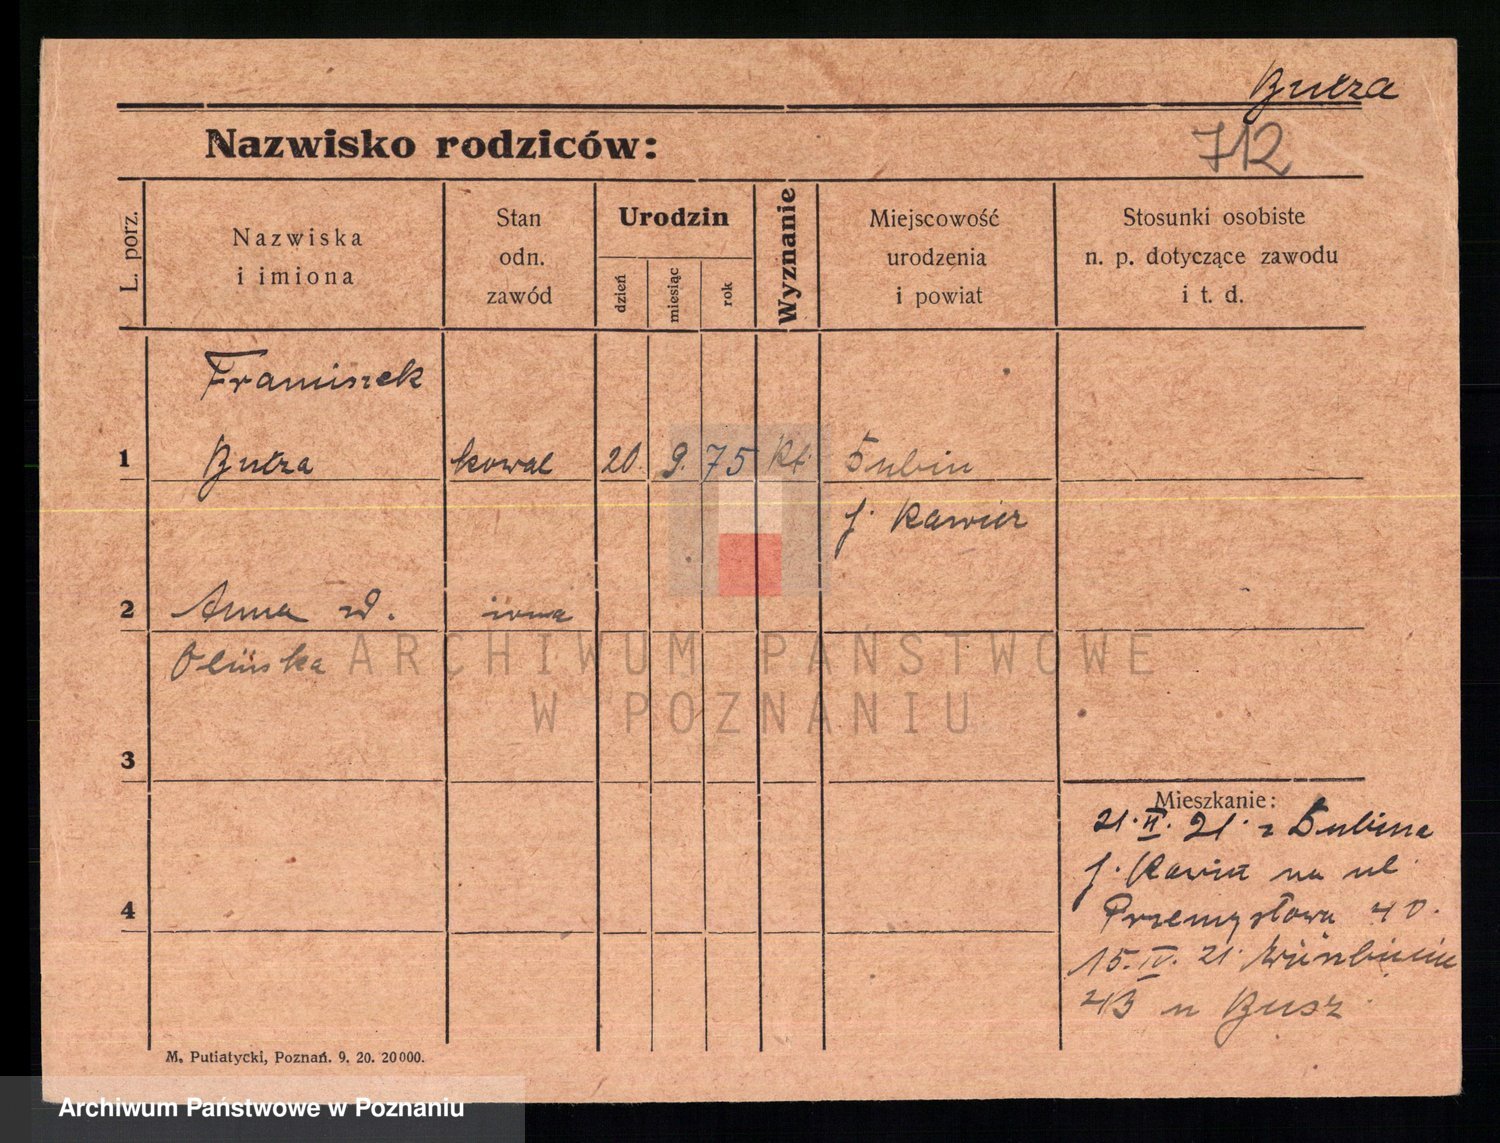 Butza
712
Nazwisko rodziców:
L. porz.
Nazwiska
i imiona
Stan
odn.
zawód
Urodzin
dzień
miesiąc
rok
Wyznanie
Miejscowość
urodzenia
i powiat
Stosunki osobiste
n. p. dotyczące zawodu
i t. d.
Franciszek
1 Butza kowal 20. 9. 75 kt. Łubin
p. Rawicz
2 Anna żona
3
4
Mieszkanie:
21. II. 21. z
p. Rawicz na ul
Przemysłowa 40.
15. IV. 21.
M. Putiatycki, Poznań. 9. 20. 20000.
ARCHIWUM PAŃSTWOWE
W POZNANIU
Archiwum Państwowe w Poznaniu